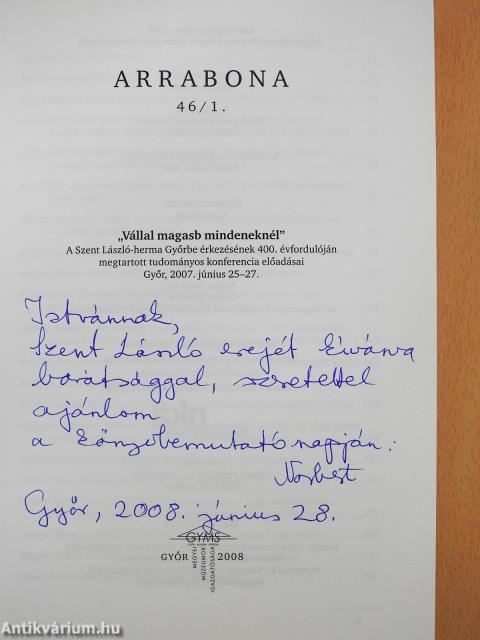 ARRABONA
46/1.
„Vállal magasb mindeneknél”
A Szent László-herma Győrbe érkezésének 400. évfordulóján
megtartott tudományos konferencia előadásai
Győr, 2007. június 25–27.
Istvánnak,
Szent László erejét kívánva
barátsággal, szeretettel
ajánlom
a könyvbemutató napján:
Norbert
Győr, 2008. június 28.
GYMS
MEGYEI
MÚZEUMOK
IGAZGATÓSÁGA
GYŐR 2008
Antikvárium.hu